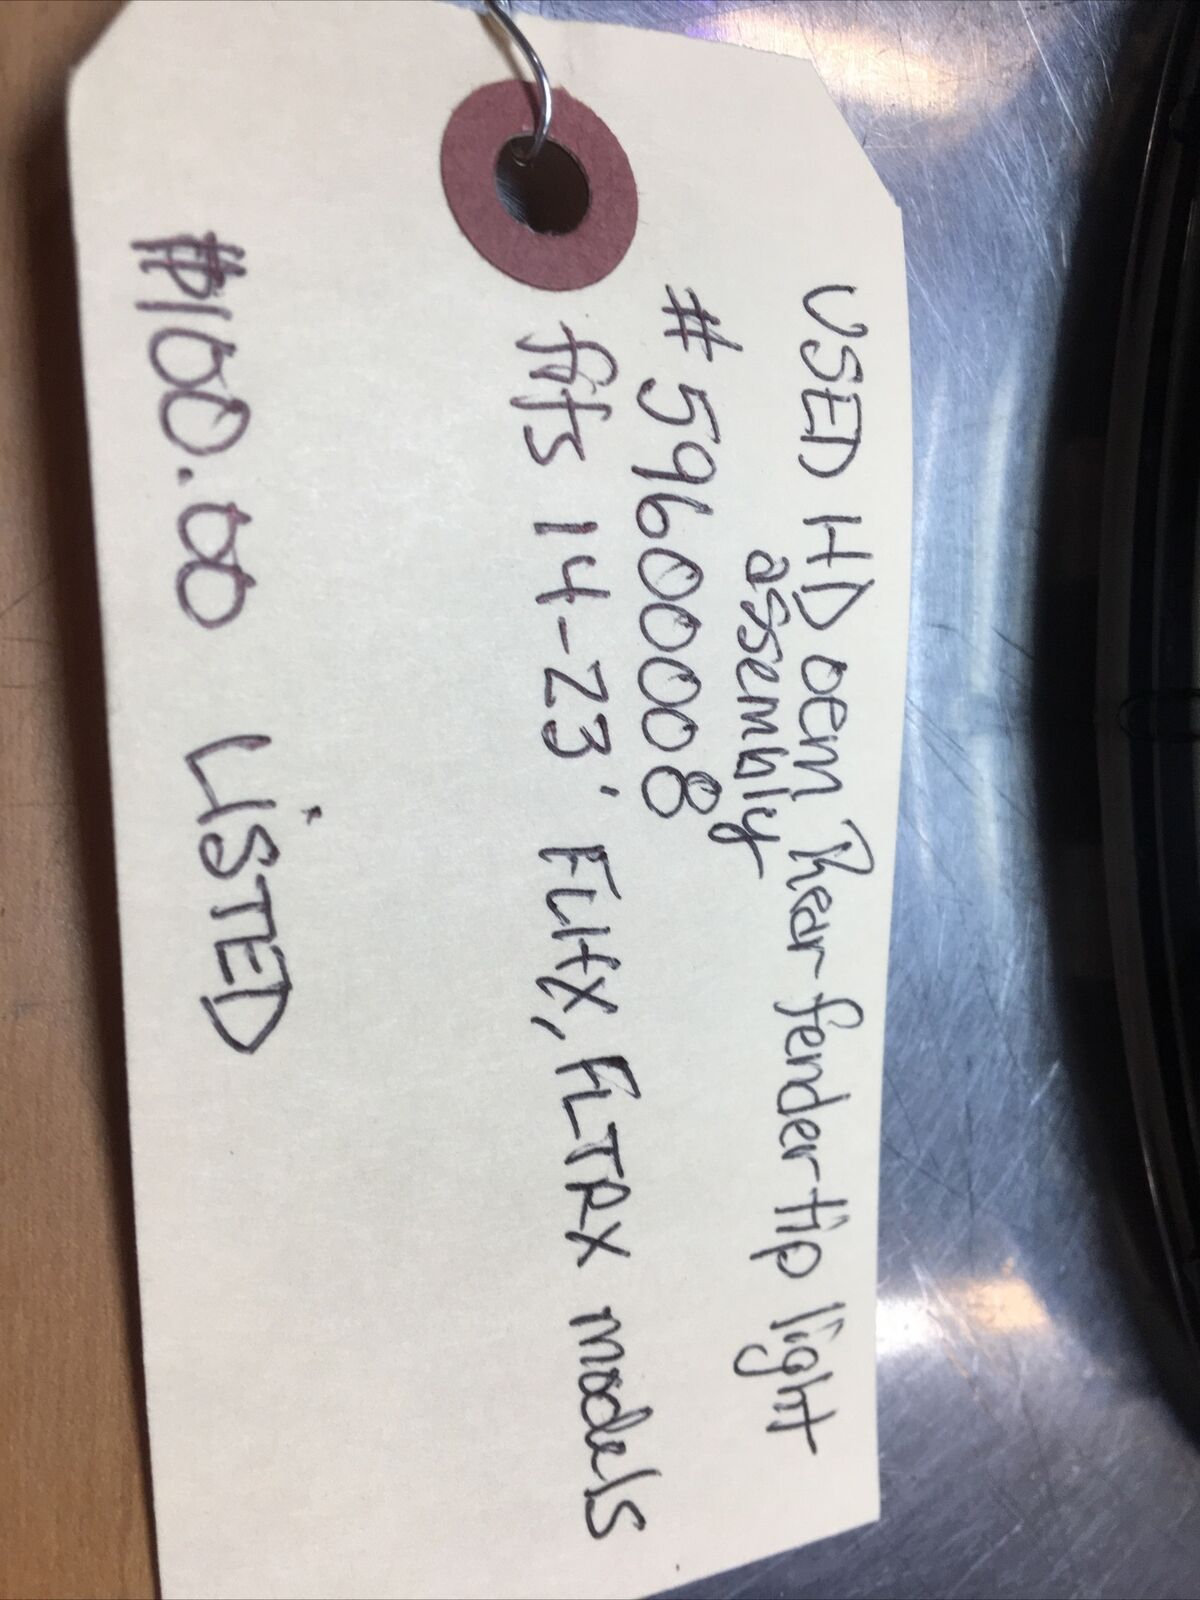 USED HD oem Rear fender tip light
assembly
# 59600008
fits 14-23' FLHX, FLTRX models
$100.00 LiSTED